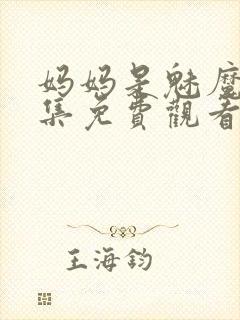 妈妈是魅魔
集免費觀看
王海鈞